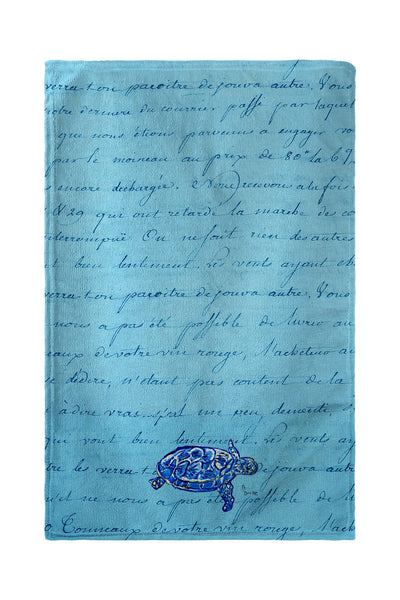 verra ton paroitre de jouva autre. Vous
notre derniere du courrier passé par laquel
que nous étions parvenus a engager vo
par le moineau au prix de 80" la 67
encore debargée. Nous recevons a la fois
& 29 qui ont retardé la marche des co
terrompuë On ne foit rien des autres
t bien lentiment. les vents ayant ch
verra ton paroitre de jouva autre. Vous
nous a pas été possible de livrer au
eaux de votre vin rouge, l'acheteur au
se dédire, n'etant pas content de la
à dire vras. j'ai un peu, dementi, s
qui vont bien lentiment. les vents
tre les verra t
jouva autre
ut ne nous a pas été possible de
Tonneaux de votre vin rouge, l'ach